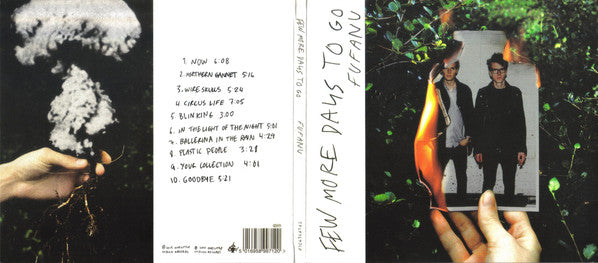 1. NOW 6:08
2. NORTHERN GANNET 5:16
3. WIRE SKULLS 5:24
4. CIRCUS LIFE 7:05
5 BLINKING 3:00
6. IN THE LIGHT OF THE NIGHT 5:01
7. BALLERINA IN THE RAIN 4:29
8. PLASTIC PEOPLE 3:28
9. YOUR COLLECTION 4:01
10. GOODBYE 5:21
FEW MORE DAYS TO GO
FUFANU
FEW MORE DAYS TO GO
FUFANU